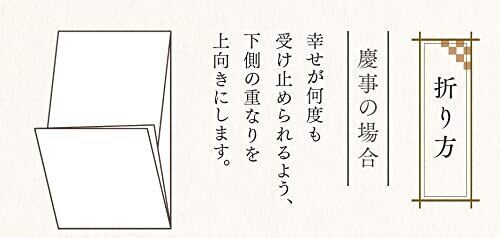 折り方
慶事の場合
幸せが何度も
受け止められるよう、
下側の重なりを
上向きにします。